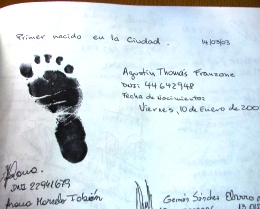 Primer nacido en la Ciudad. 14/03/03
Agustin Thomás Franzone
DNI: 44642948
Fecha de Nacimiento:
Viernes, 10 de Enero de 200
DNI 22941679
Marcelo Fabián
Germán Sández